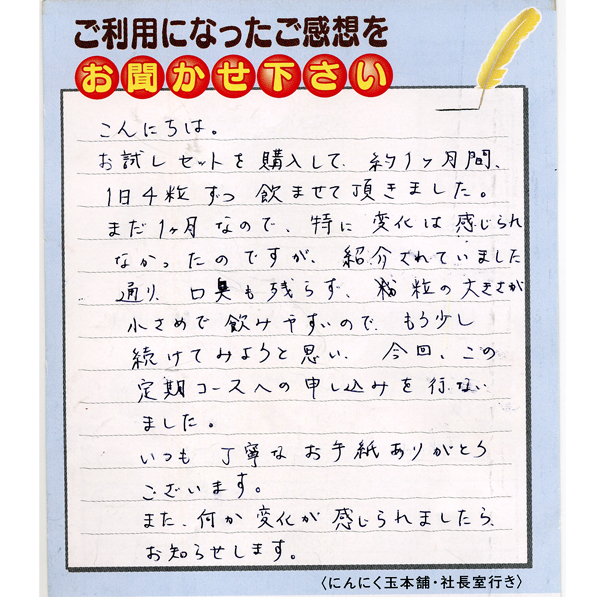 ご利用になったご感想を
お聞かせ下さい
こんにちは。
お試しセットを購入して、約1ヶ月間、
1日4粒ずつ飲ませて頂きました。
まだ1ヶ月なので、特に変化は感じられ
なかったのですが、紹介されていました
通り、口臭も残らず、粒の大きさが
小さめで飲みやすいので、もう少し
続けてみようと思い、今回、この
定期コースへの申し込みを行ない
ました。
いつも丁寧なお手紙ありがとう
ございます。
また、何か変化が感じられましたら、
お知らせします。
〈にんにく玉本舗・社長室行き〉